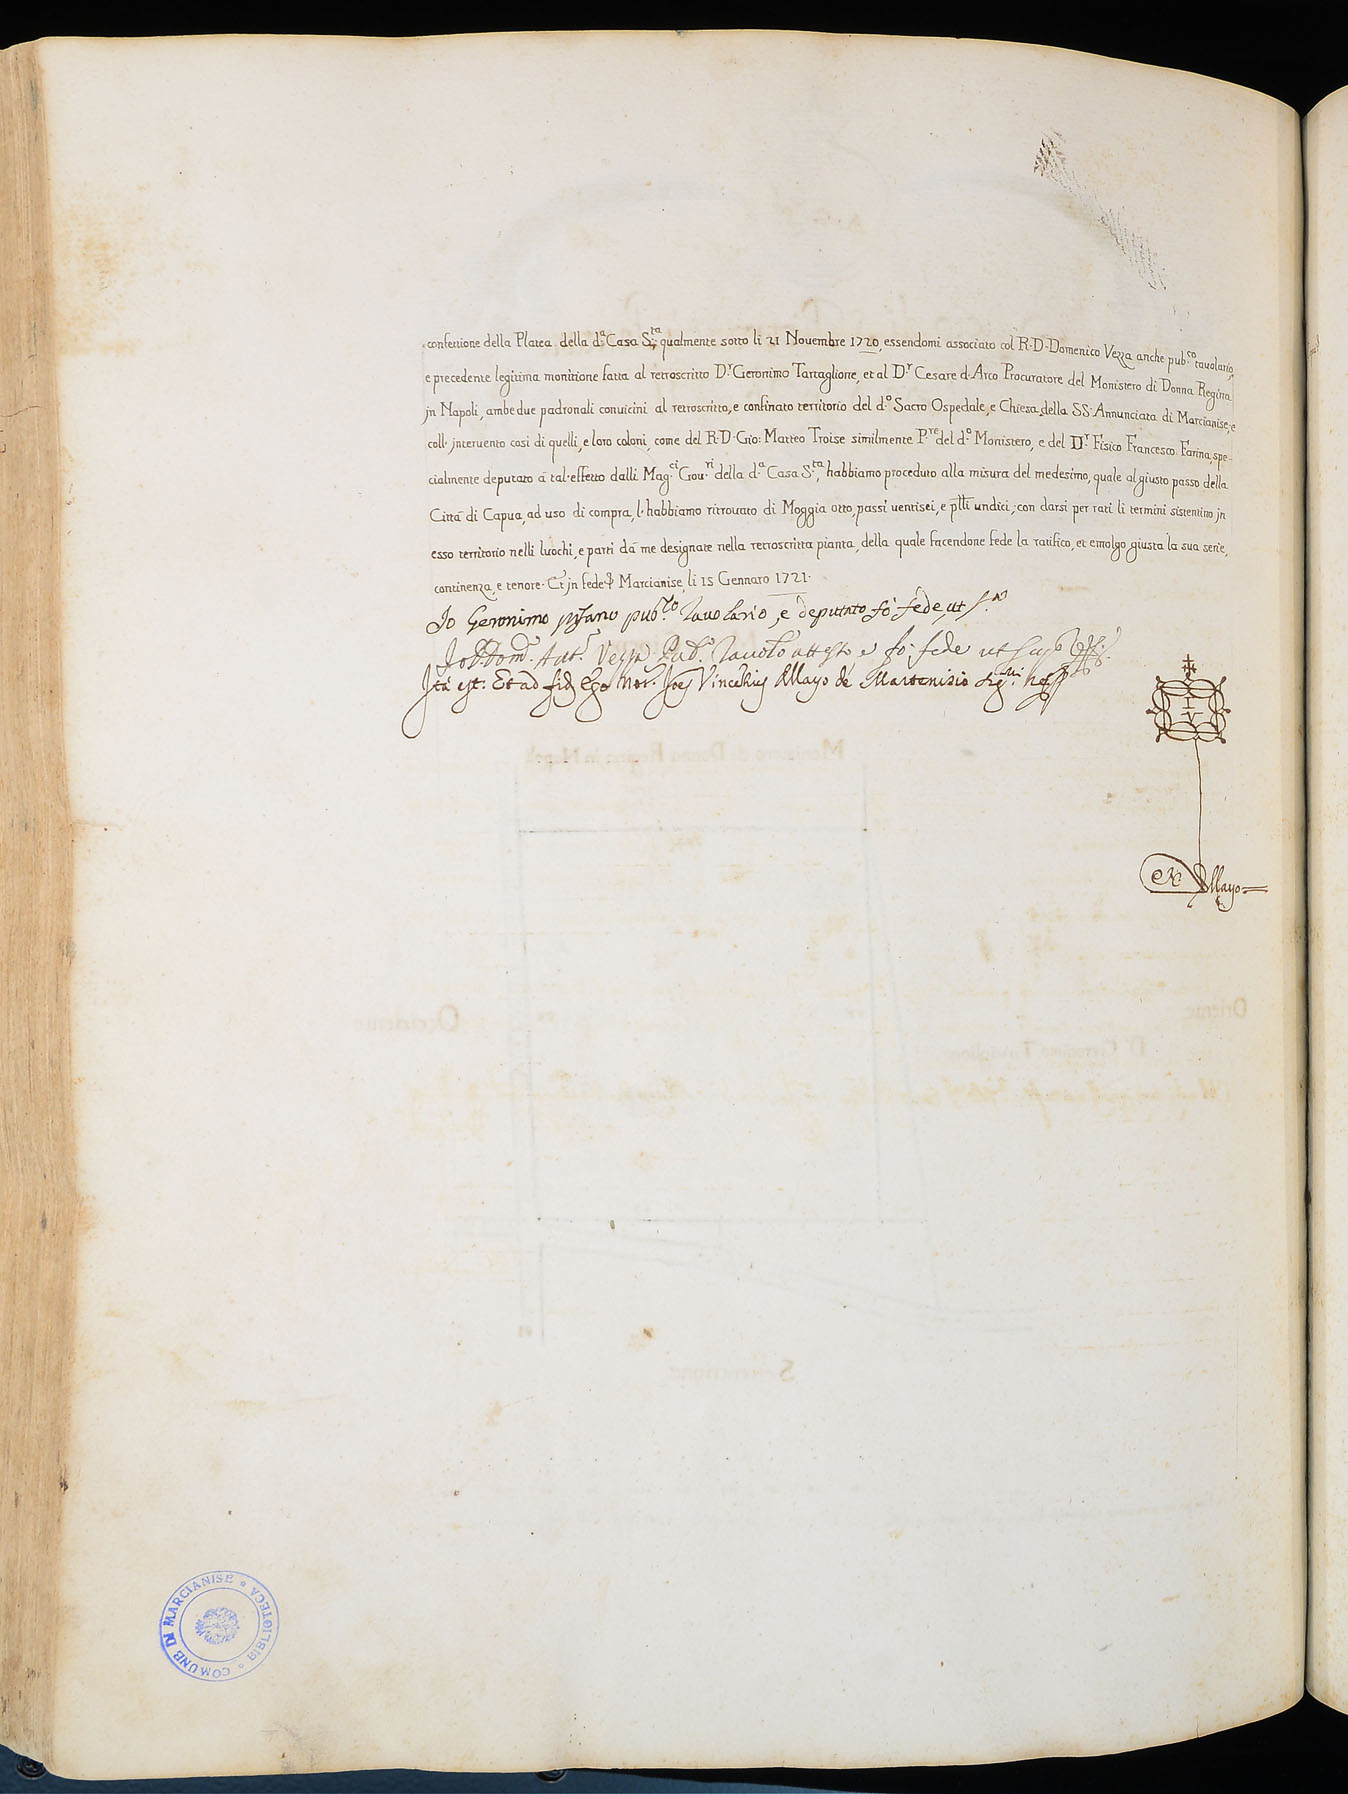 confettione della Platea della d.ª Casa S.ta; qualmente sotto li 21 Nouembre 1720, essendomi associato col R.D. Domenico Vezza anche pub.co tauolario,
e precedente legitima monitione fatta al retroscritto D.r Geronimo Tartaglione, et al D.r Cesare d'Arco Procuratore del Monistero di Donna Regina
jn Napoli, ambedue padronali conuicini al retroscritto, e confinato territorio del d.º Sacro Ospedale, e Chiesa della SS. Annunciata di Marcianise, e
coll'jnteruento cosi di quelli, e loro coloni, come del R.D. Gio: Matteo Troise similmente P.re del d.º Monistero, e del D.r Fisico Francesco Farina, spe-
cialmente deputato à tal'effetto dalli Mag.ci Gou.ri della d.ª Casa S.ta, habbiamo proceduto alla misura del medesimo, quale al giusto passo della
Città di Capua, ad uso di compra, l'habbiamo ritrouato di Moggia otto, passi uentisei, e p̃lli undici; con darsi per rati li termini sistentino jn
esso territorio nelli luochi, e parti dà me designate nella retroscritta pianta, della quale facendone fede la ratifico, et emolgo giusta la sua serie,
continenza, e tenore. Et jn fede Marcianise, li 15 Gennaro 1721.
Io Geronimo pub.co Tauolario, e deputato fò fede, ut s.a
Io D. Dom.co Ant.o Vezza Pub.o Tauol.o attesto e fò fede ut sup.a
Ita est: Et ad fidem Ego Not.r Joes Vincentius de Mayo de Martenisio
I V
N. de Mayo
COMUNE DI MARCIANISE * BIBLIOTECA *